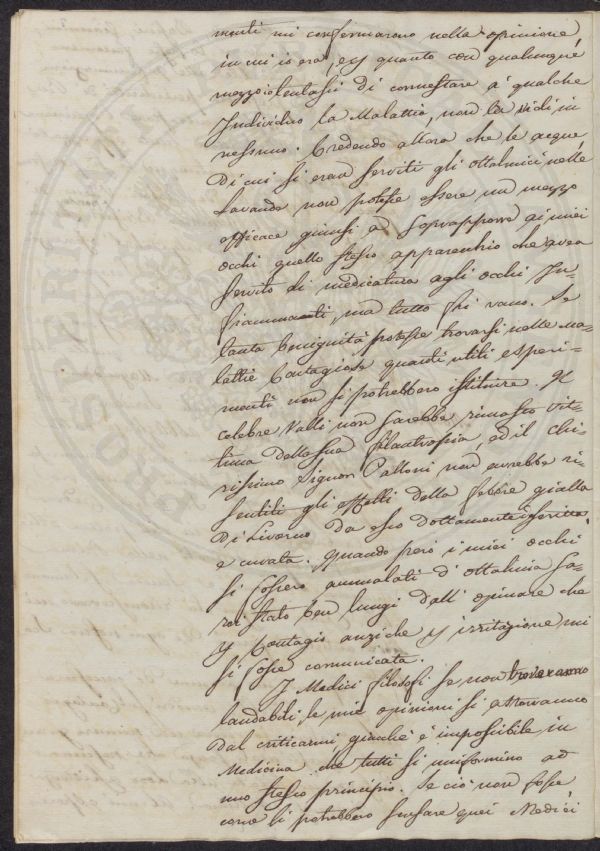 menti mi confermarono nella opinione,
in cui io era, e per quanto con qualunque
mezzo io tentassi di connestare a qualche
Individuo la Malattia, non la vidi in
nessuno. Credendo allora che le acque
di cui si eran serviti gli ottalmici nelle
Lavande non potesse essere un mezzo
efficace giunsi a soprapporre ai miei
occhi quello stesso apparecchio che avea
servito di medicatura agli occhi In-
fiammanti, ma tutto fu vano. Se
tanta benignità potesse trovarsi nelle ma-
lattie Contagiose quanti utili esperi-
menti non si potrebbero istituire. Il
celebre Valli non sarebbe rimasto vit-
tima della sua filantropia, ed il chi-
rissimo Signor Palloni non avrebbe ri-
sentiti gli effetti della febbre gialla
di Livorno da esso dottamente descritta,
e curata. Quando però i miei occhi
si fossero ammalati d'ottalmia sa-
rei stato ben lungi dall'opinare che
p Contagio anziche p irritazione mi
si fosse comunicata.
I Medici filosofi se non troveranno
laudabili le mie opinioni si asterranno
dal criticarmi giacchè è impossibile in
Medicina che tutti si uniformino ad
uno stesso principio. Se ciò non fosse
come si potrebbero scusare quei Medici